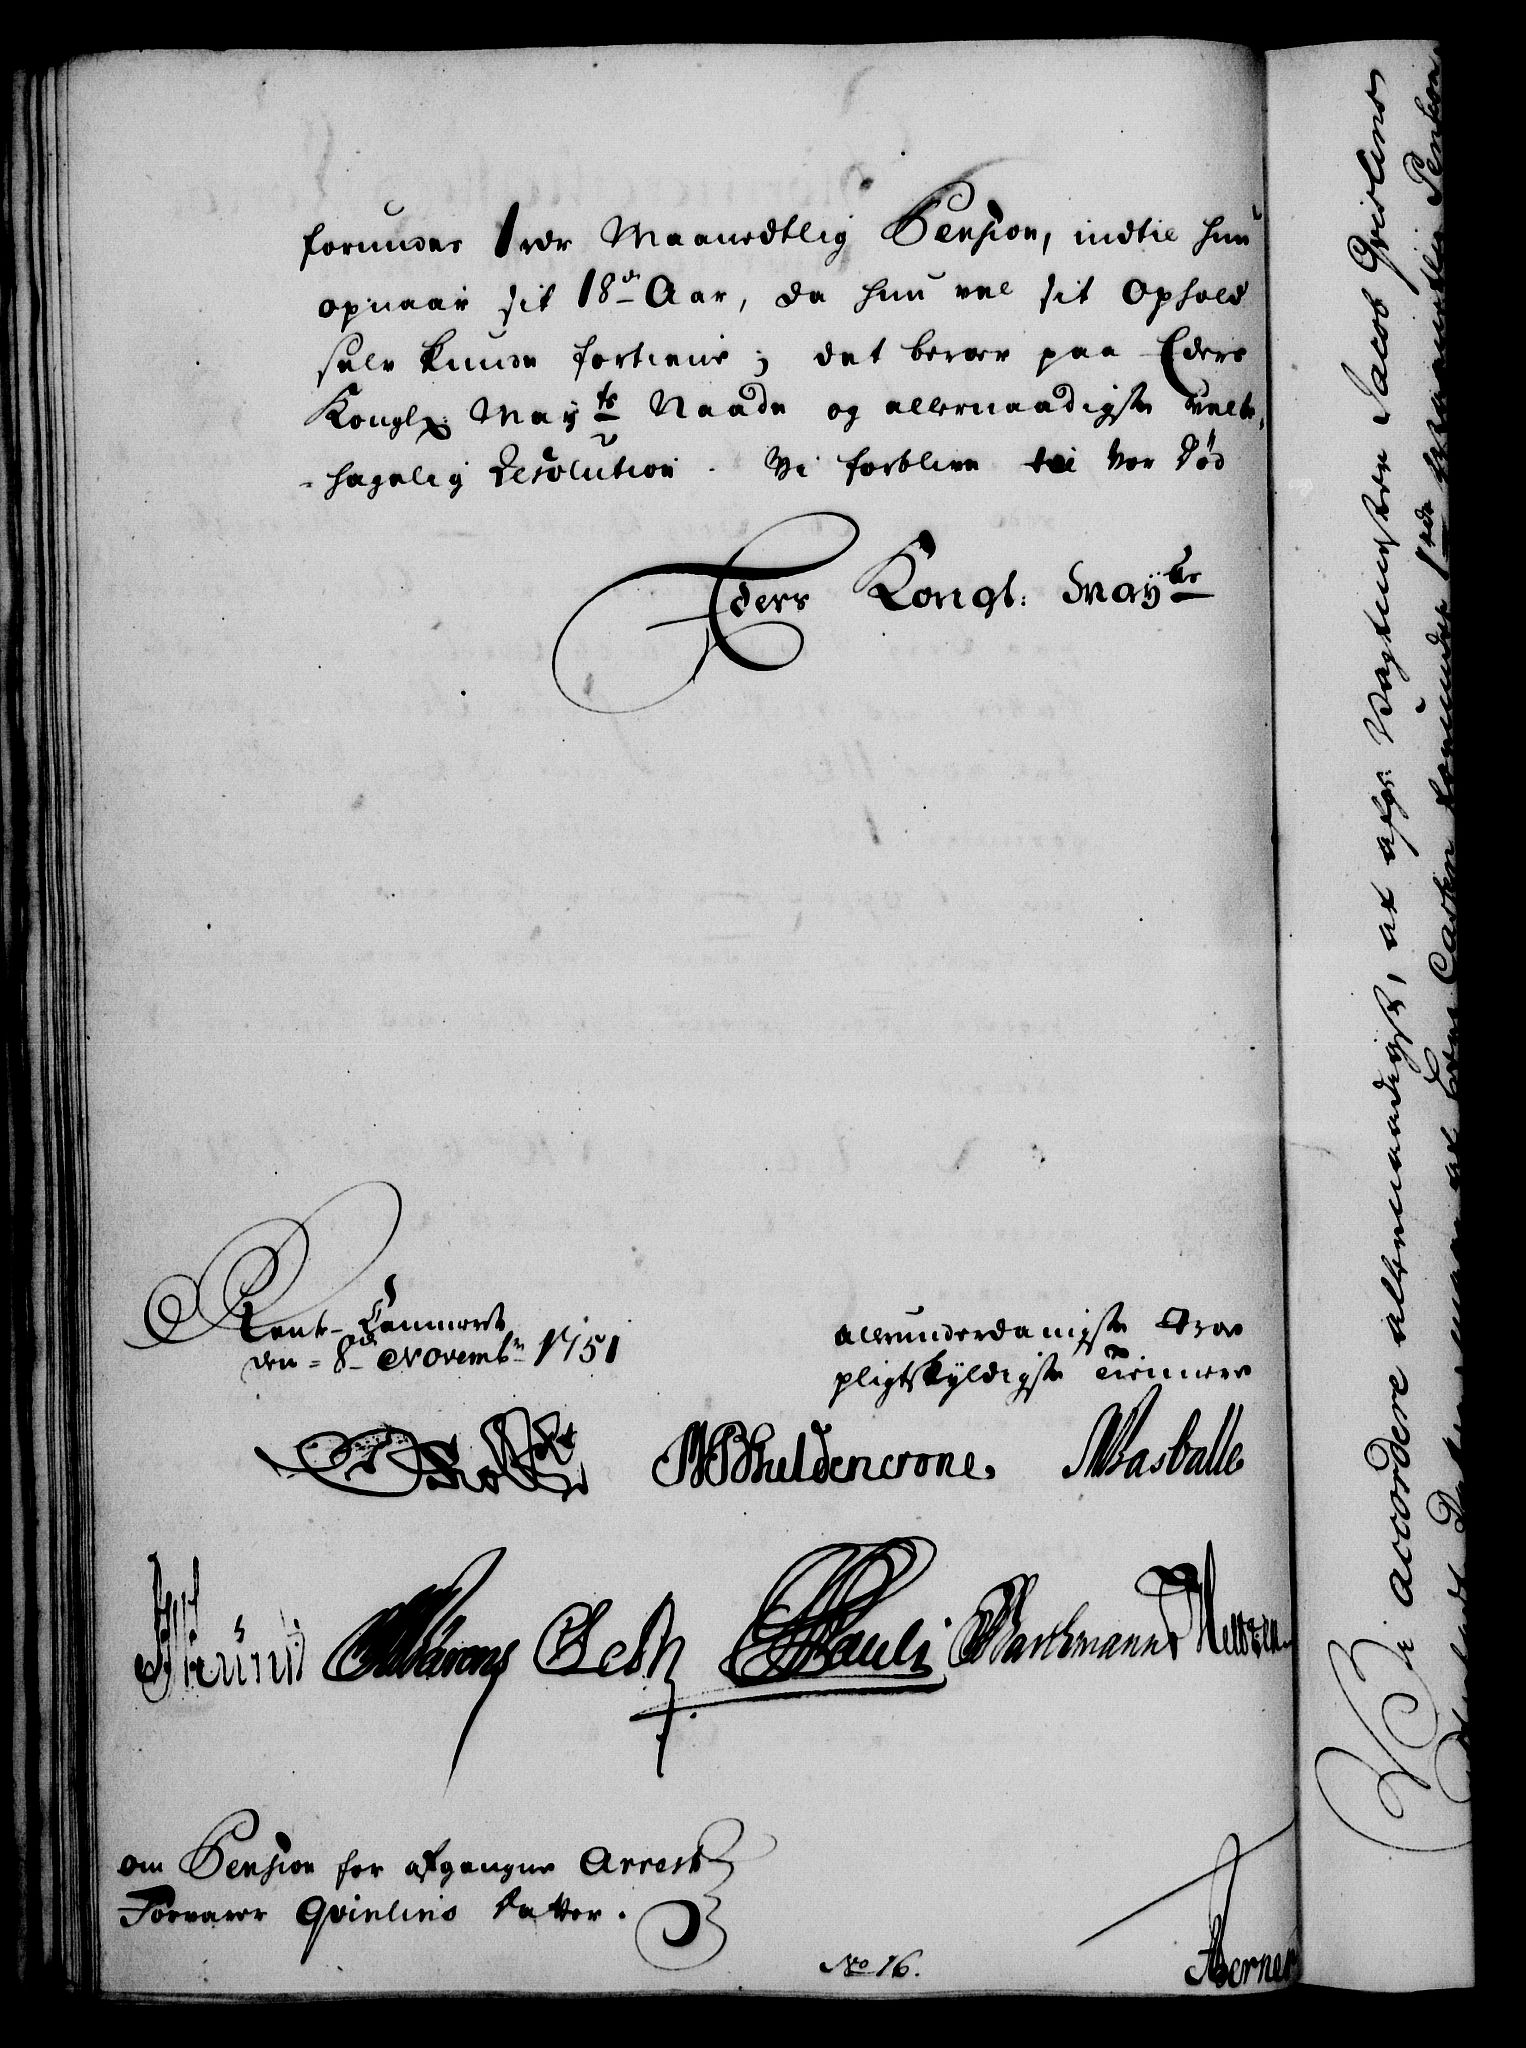 forundes 1 rdr Maanedtlig Pension, indtil hun
opnaar sit 18de Aar, da hun vel sit Ophold
selv kunde fortiene; det beroer paa Eders
Kongl. Mayts Naade og allernaadigste velbe-
-hagelig Resolution. Vi forblive til vor Død
Eders Kongl: Mayts
Rente-Cammeret
den 8de Novembr 1751
allerunderdanigste Troe
pligtskyldigste Tiennere
Holst JWBhuldencrone. Basballe
Gründ Barons Selt Pauli Barthmann
om Pension for afgangne Arrest
Forvarer Qvislins Datter.
No 16.
Berner
Vi accordere allernaadigst, at afgr. Vagtmester Jacob Qvislins
Datter maa af Casten forundes 1 rdr Maanedtlig Pension